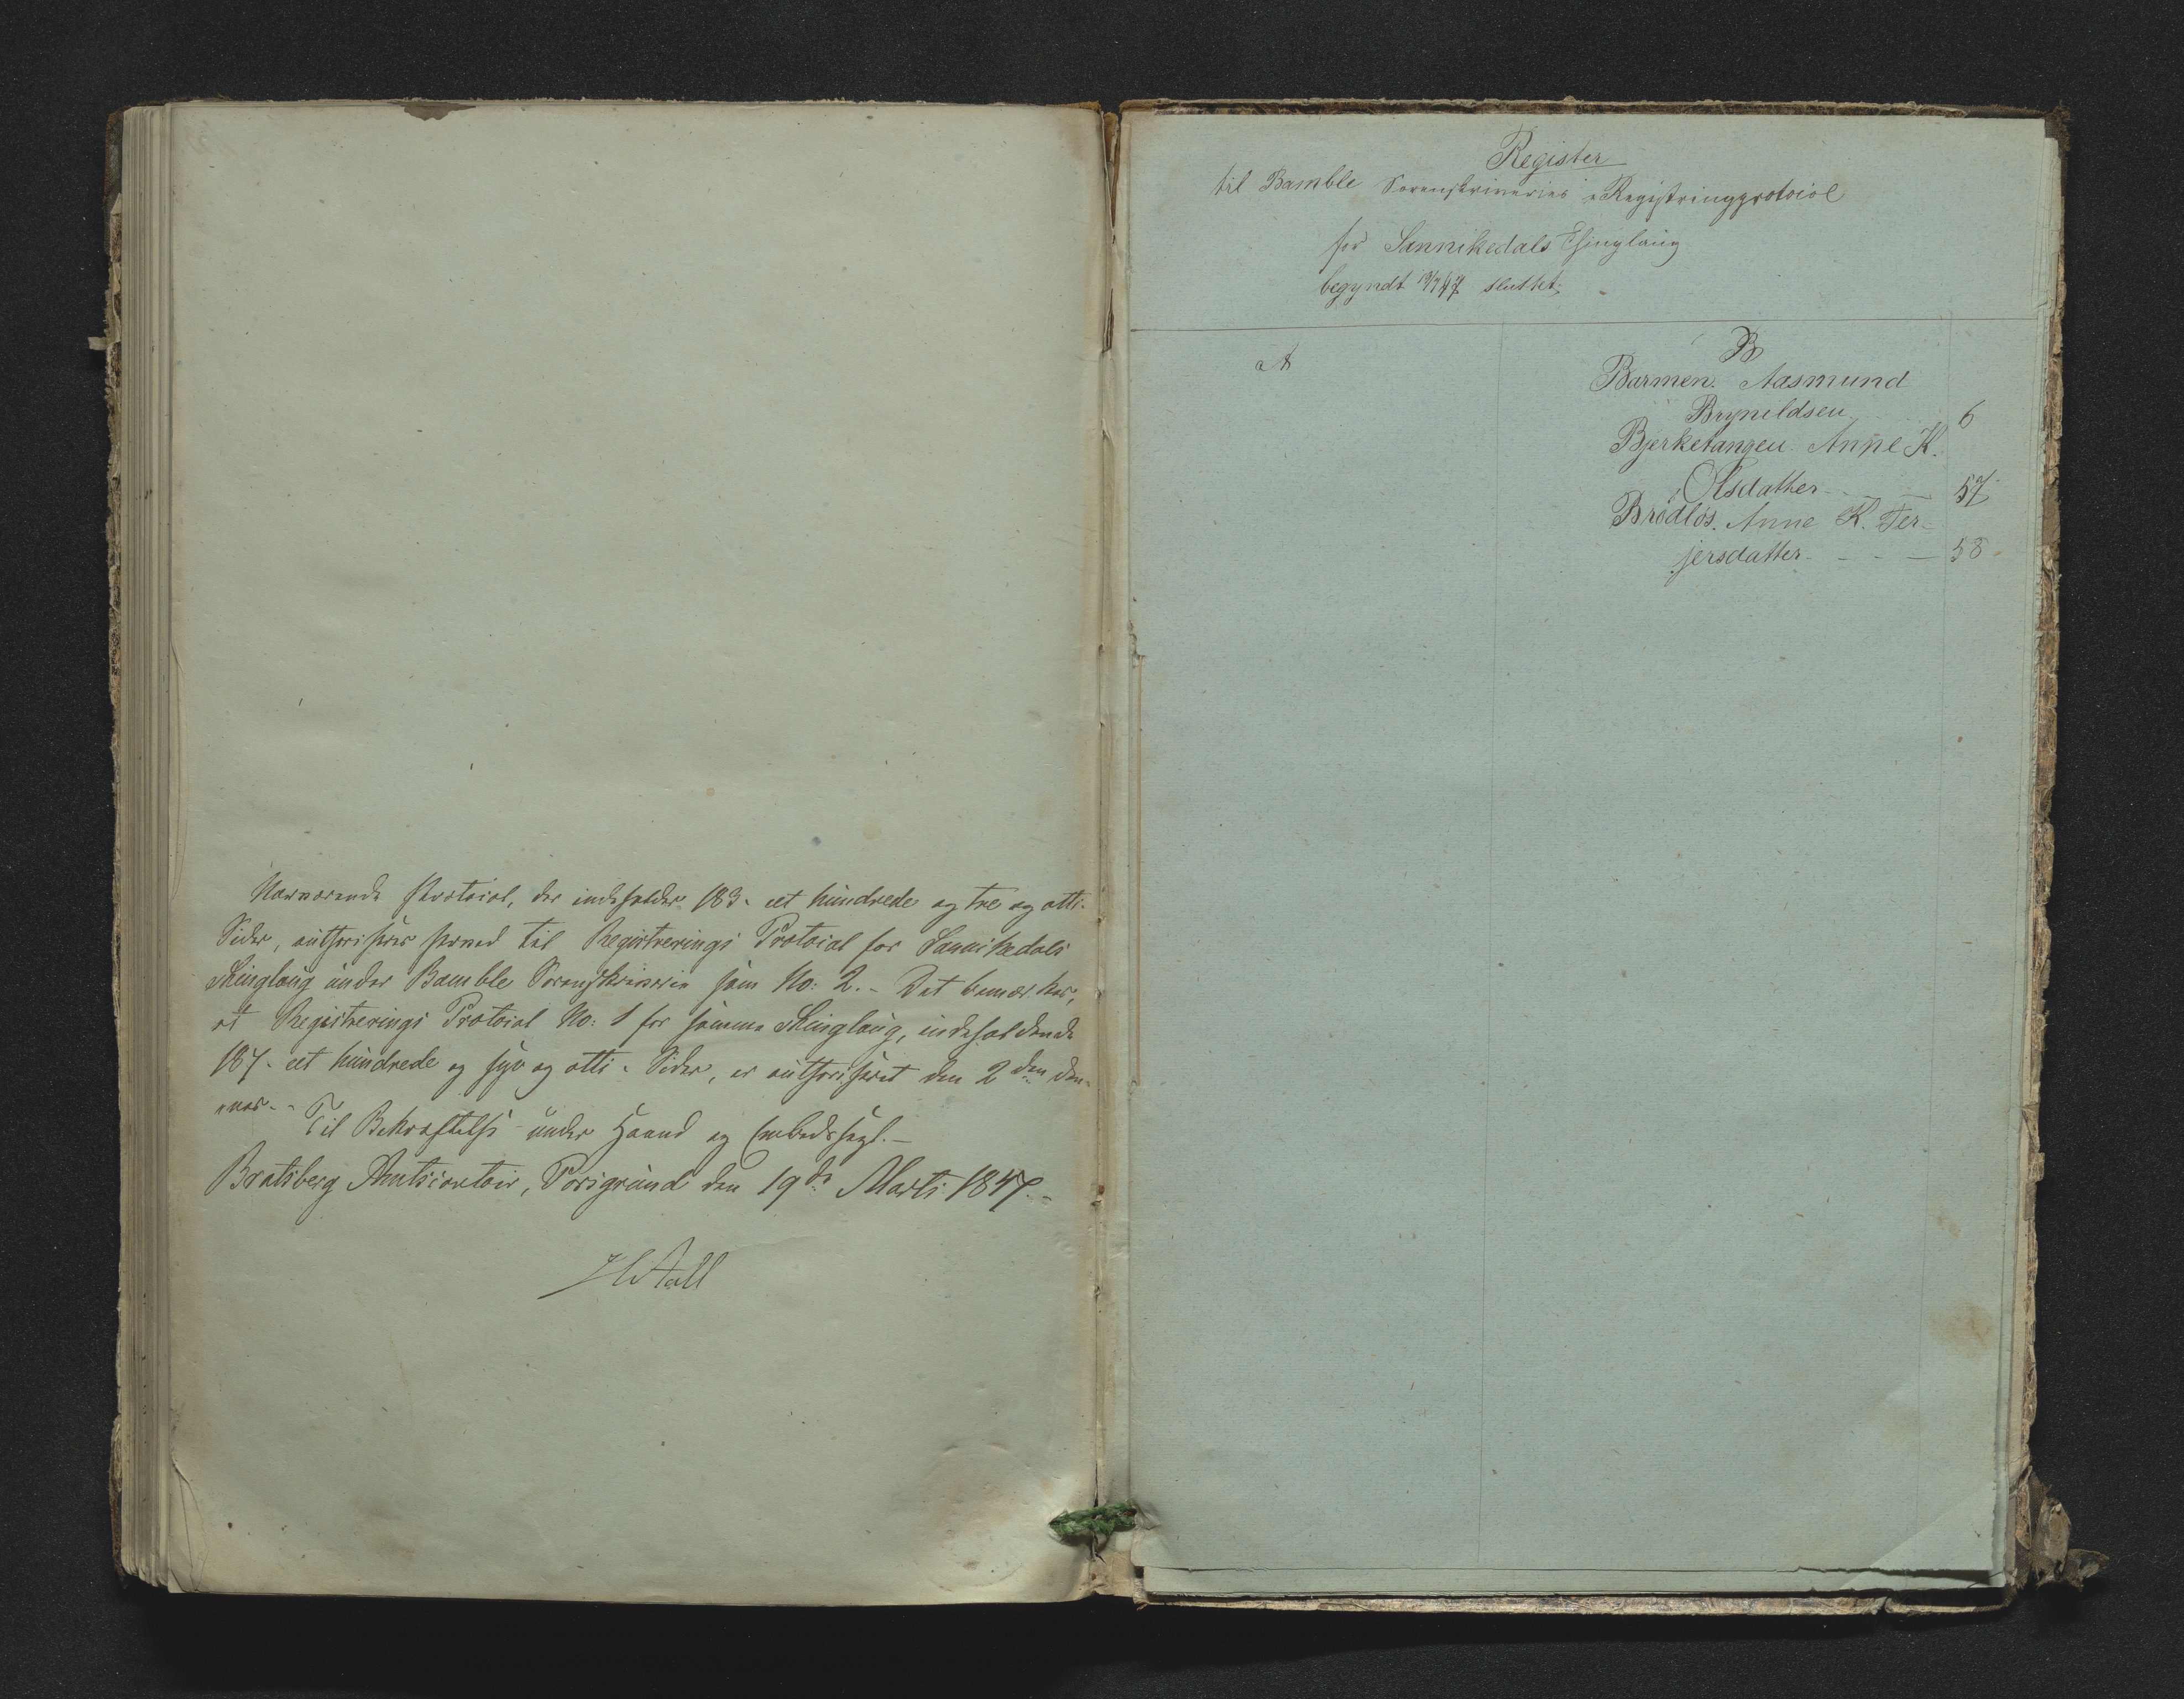 Nærværende Protocol, der indeholder 183 - eet hundrede og tre og otti -
Sider, authoriseres herved til Registrerings Protocol for Sannikedals
Thinglaug under Bamble Sorenskriverie som No: 2. - Det bemærkes,
at Registrerings Protocol No: 1 for samme Thinglaug, indeholdende
187 - eet hundrede og syv og otti - Sider, er authoriseret den 2den den-
nes. -
Til Bekræftelse under Haand og Embedssegl. -
Bratsberg Amtscontoir, Porsgrund den 19de Marts 1847. -
H Aall
Register
til Bamble Sorenskriveries Registringsprotocol
for Sannikedals Thinglaug
begyndt 47 sluttet
A
B
Barmen. Aasmund
Brynildsen 6
Bjerketangen. Anne K.
Olsdatter - - - 57
Brødløs. Anne K. Ter-
jersdatter - - - - 58